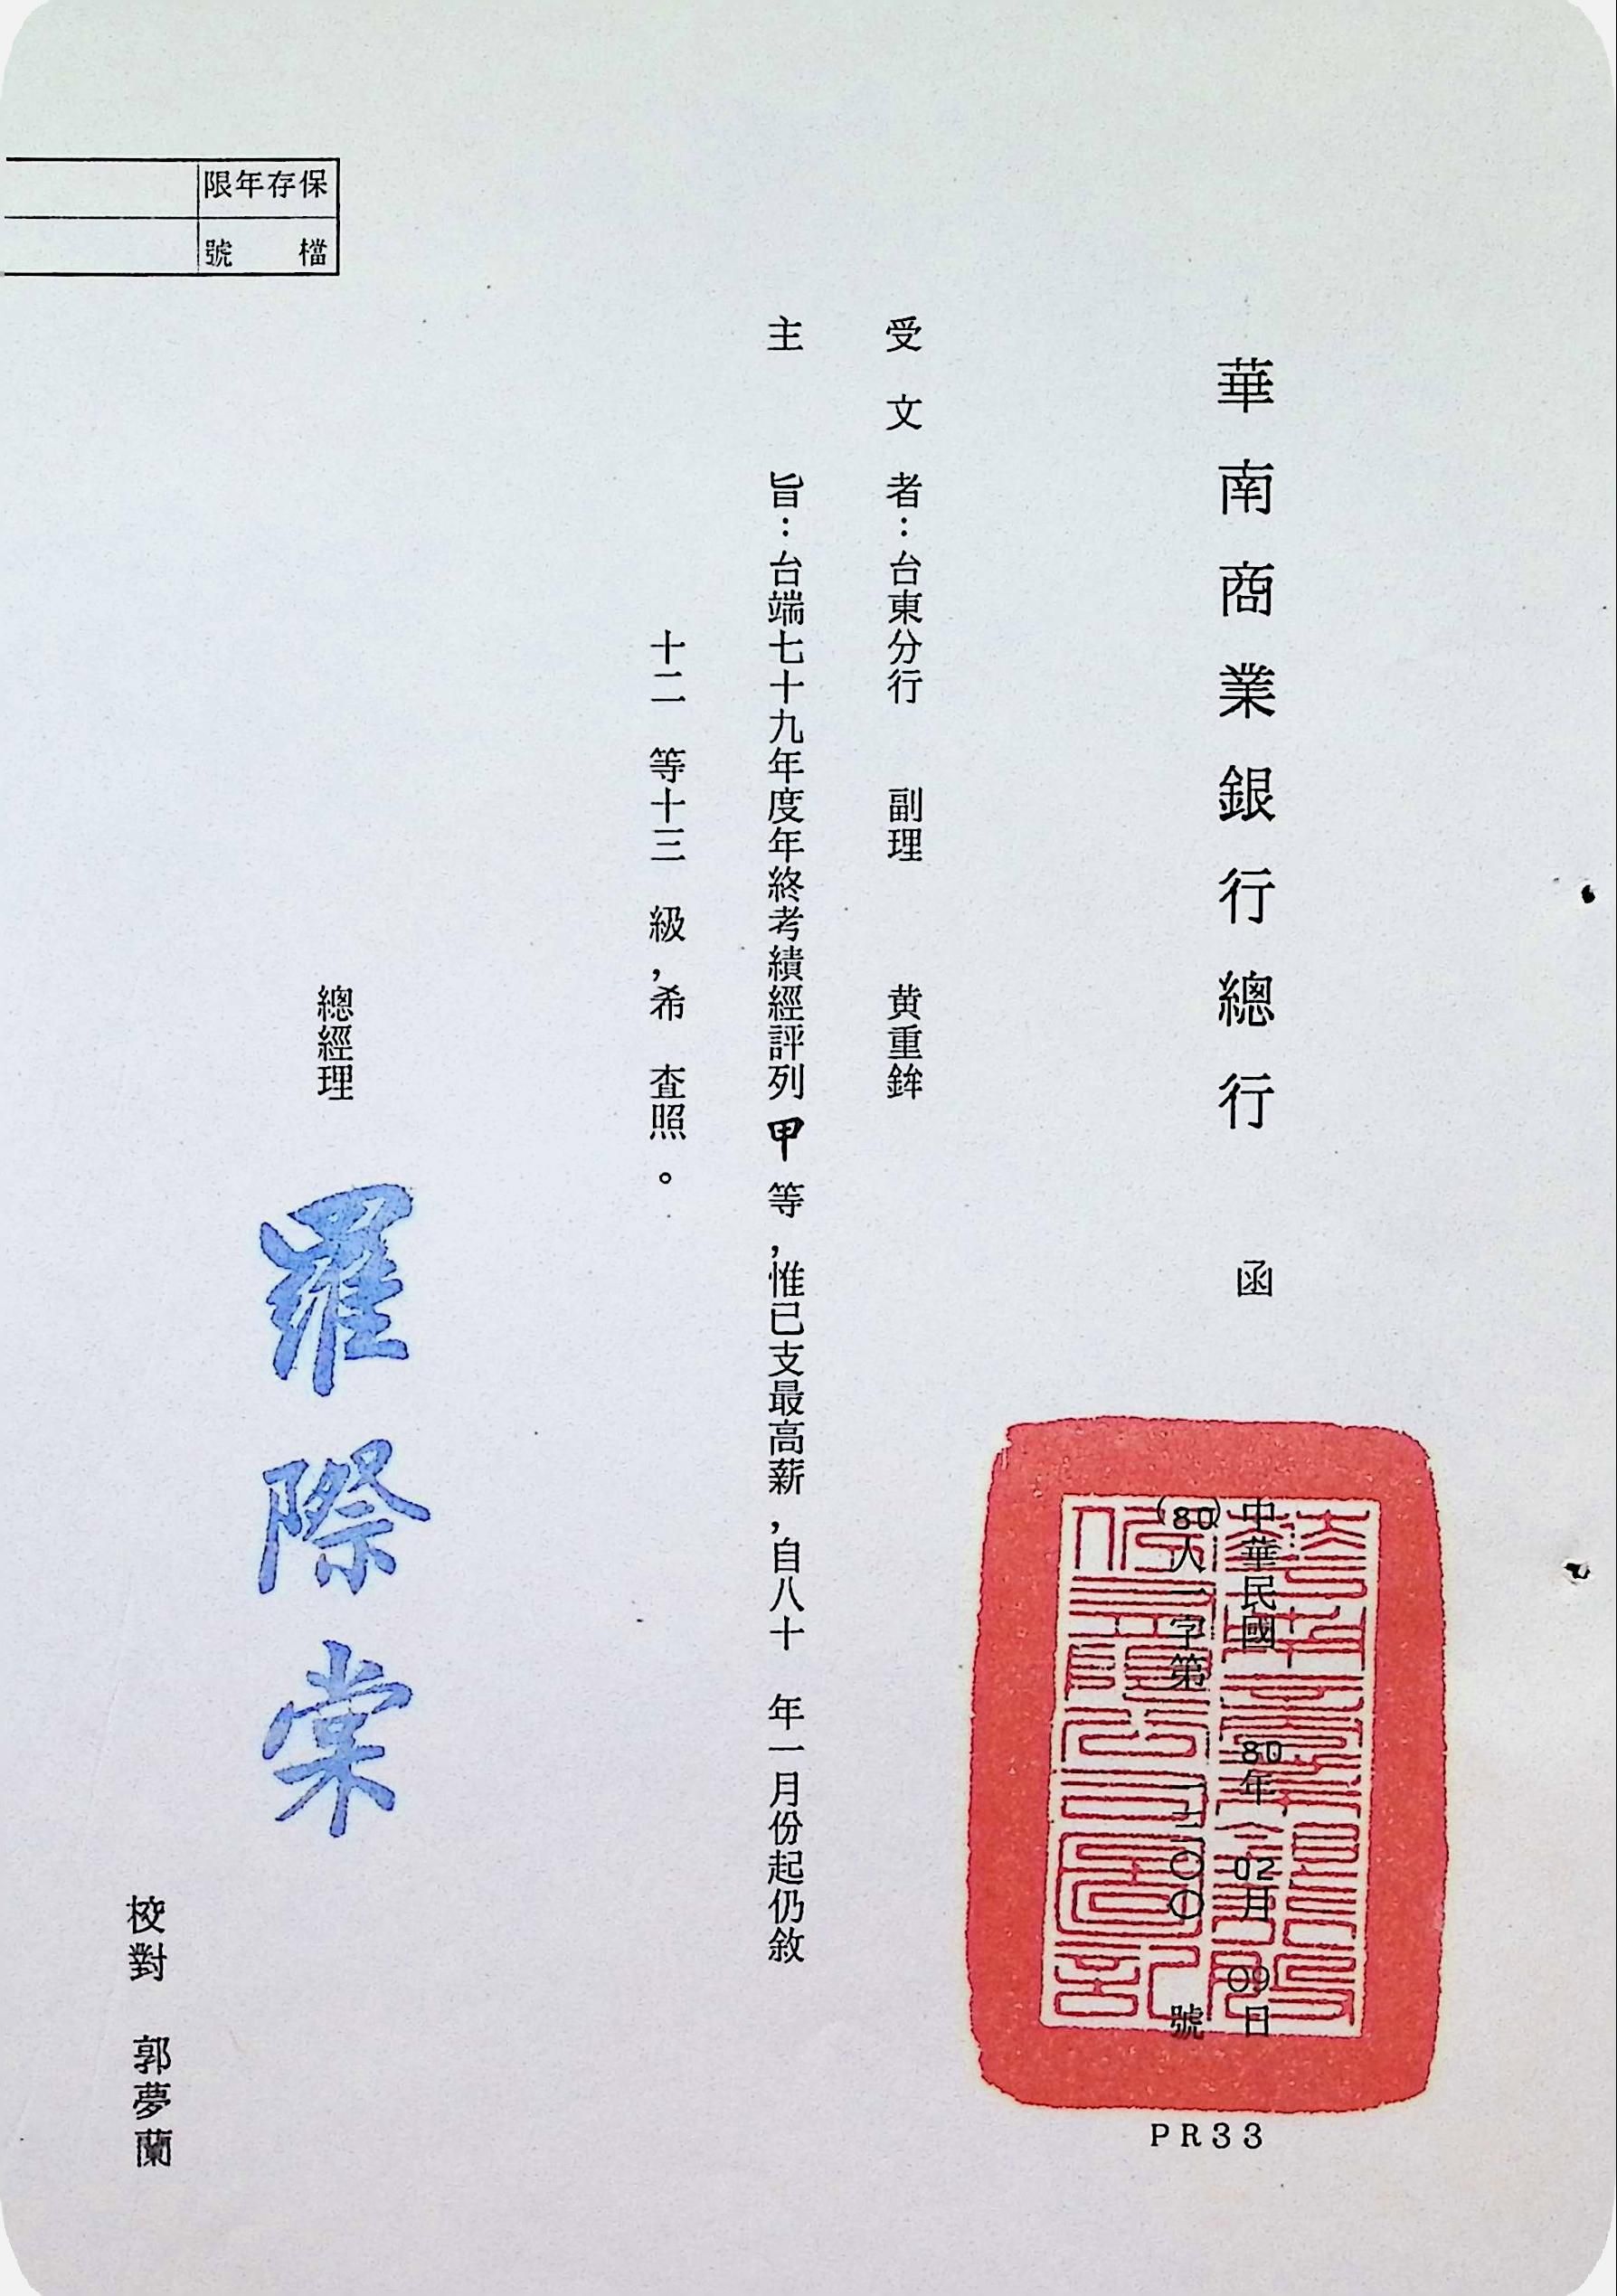 華南商業銀行總行　函
中華民國 80年 02月 09日
(80)人一字第 一二〇〇 號
PR33
受文者：台東分行　副理　黄重鉾
主　旨：台端七十九年度年終考績經評列甲等，惟已支最高薪，自八十 年一月份起仍敘
十二 等十三 級，希 查照。
總經理　羅際棠
保存年限
檔號
校對　郭夢蘭